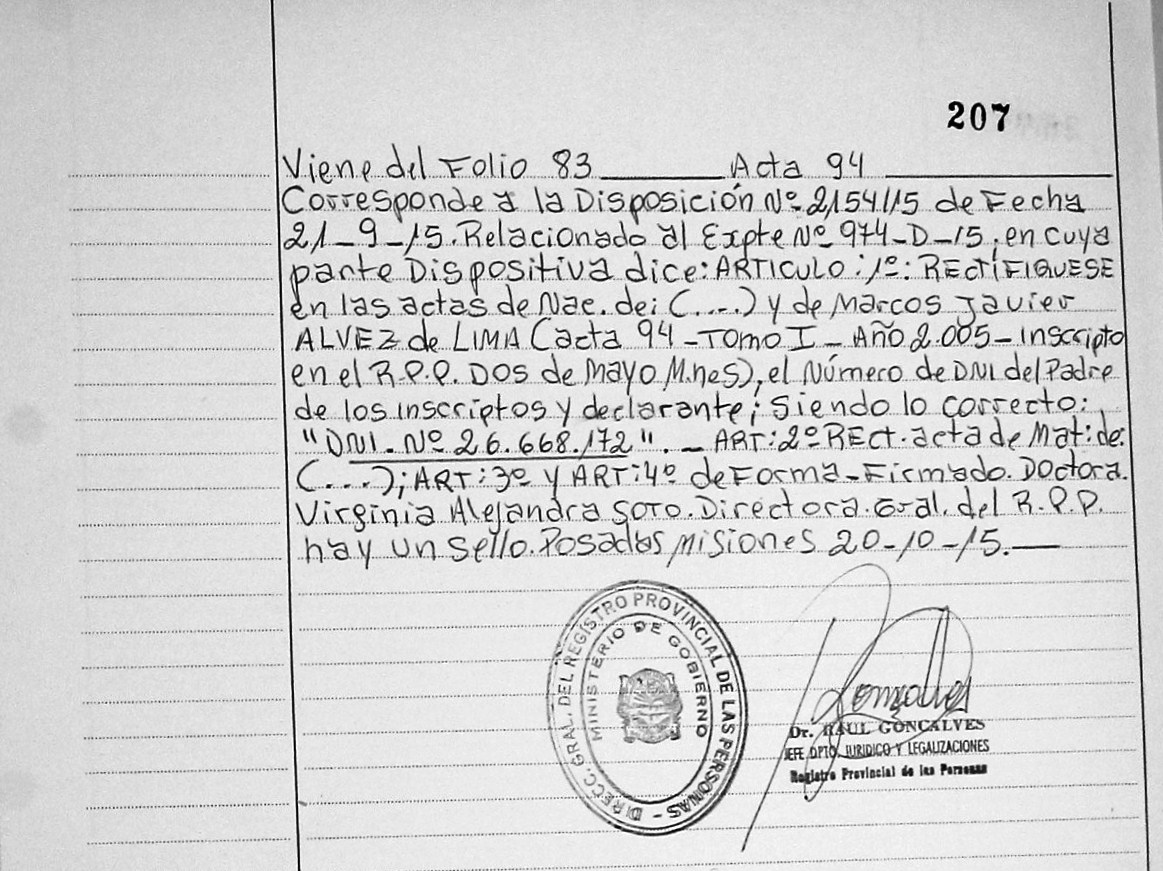 207
Viene del Folio 83 Acta 94
Corresponde a la Disposición Nº 2154/15 de Fecha
21-9-15. Relacionado al Expte Nº 974-D-15; en cuya
parte Dispositiva dice: ARTICULO: 1º: RECTIFIQUESE
en las actas de Nac. de: (....) y de Marcos Javier
ALVEZ de LIMA (acta 94 - TOMO I - Año 2.005 - Inscripto
en el R.P.P. Dos de Mayo M.nes), el Número de DNI del Padre
de los inscriptos y declarante; Siendo lo correcto:
"DNI. Nº 26.668.172". - ART: 2º RECt. acta de Mat: de:
(....); ART: 3º y ART: 4º de Forma - Firmado. Doctora.
Virginia Alejandra SOTO. Directora. Gral. del R.P.P.
hay un Sello. Posadas Misiones 20-10-15.
DIRECC. GRAL. DEL REGISTRO PROVINCIAL DE LAS PERSONAS -
MINISTERIO DE GOBIERNO
Dr. RAUL GONCALVES
JEFE DPTO. JURIDICO Y LEGALIZACIONES
Registro Provincial de las Personas